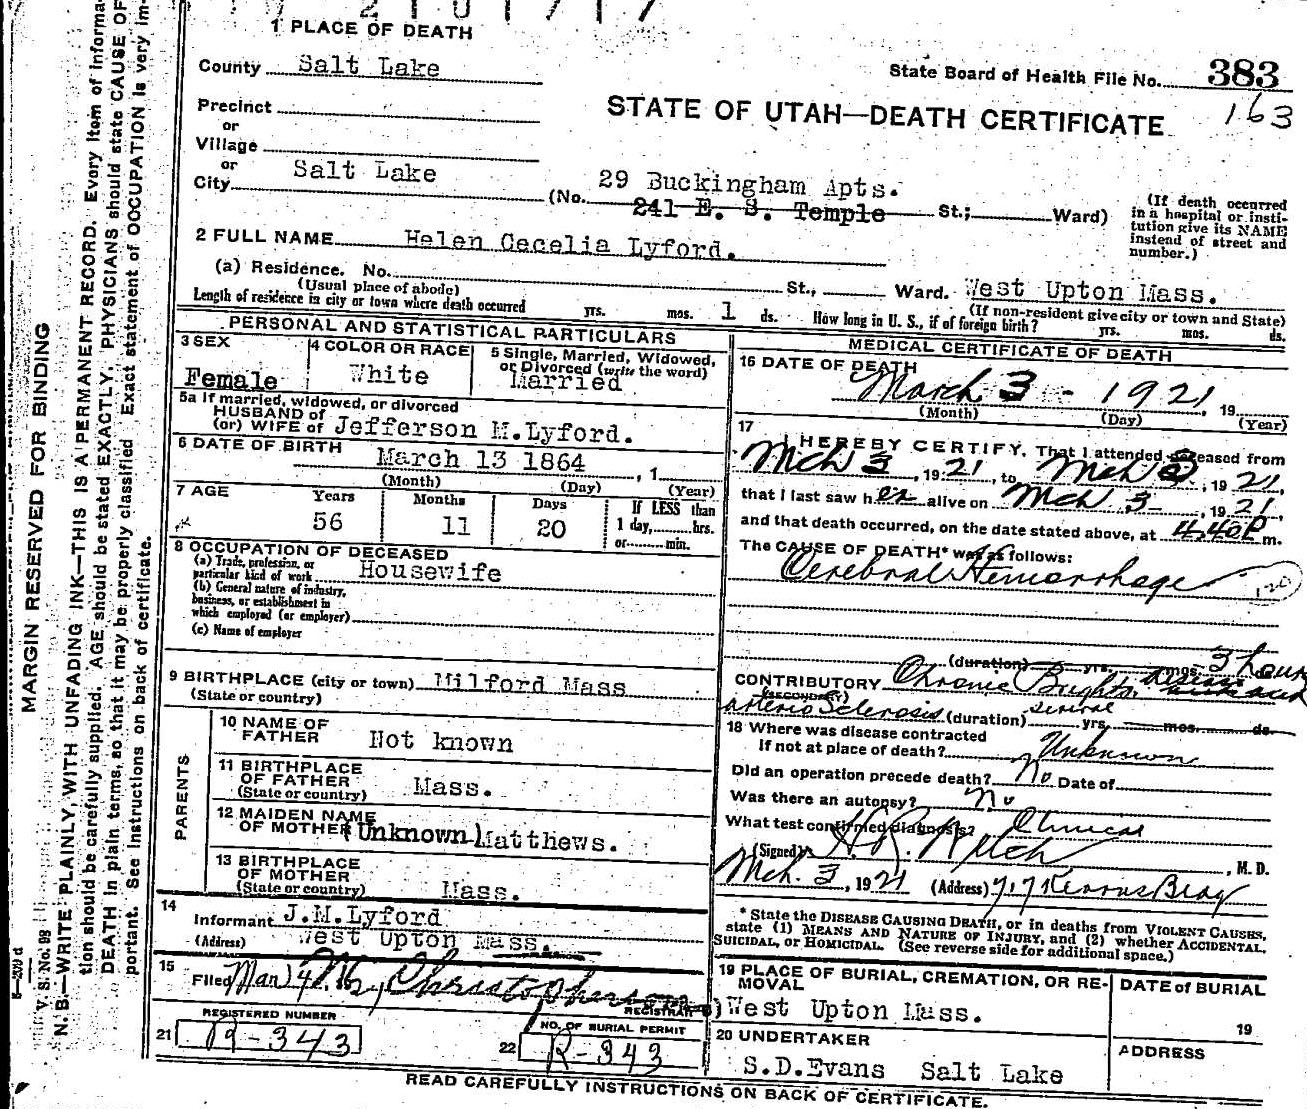 1 PLACE OF DEATH
County Salt Lake
State Board of Health File No. 383
163
Precinct
or
STATE OF UTAH—DEATH CERTIFICATE
Village
or
City Salt Lake
(No. 29 Buckingham Apts.
241 E. S. Temple St.; Ward)
(If death occurred
in a hospital or insti-
tution give its NAME
instead of street and
number.)
2 FULL NAME Helen Cecelia Lyford.
(a) Residence. No. St., Ward. West Upton Mass.
(Usual place of abode)
(If non-resident give city or town and State)
Length of residence in city or town where death occurred yrs. mos. 1 ds. How long in U. S., if of foreign birth? yrs. mos. ds.
PERSONAL AND STATISTICAL PARTICULARS
3 SEX
Female
4 COLOR OR RACE
White
5 Single, Married, Widowed,
or Divorced (write the word)
Married
5a If married, widowed, or divorced
HUSBAND of
(or) WIFE of Jefferson M.Lyford.
6 DATE OF BIRTH
March 13 1864 , 1
(Month) (Day) (Year)
7 AGE Years Months Days If LESS than
56 11 20 1 day, hrs.
or min.
8 OCCUPATION OF DECEASED
(a) Trade, profession, or
particular kind of work Housewife
(b) General nature of industry,
business, or establishment in
which employed (or employer)
(c) Name of employer
9 BIRTHPLACE (city or town) Milford Mass
(State or country)
PARENTS
10 NAME OF
FATHER Not known
11 BIRTHPLACE
OF FATHER
(State or country) Mass.
12 MAIDEN NAME
OF MOTHER (Unknown) Matthews.
13 BIRTHPLACE
OF MOTHER
(State or country) Mass.
14
Informant J.M.Lyford
(Address) West Upton Mass.
15
Filed Mar 4 Christopherson
REGISTRAR
REGISTERED NUMBER
21 R-343
NO. OF BURIAL PERMIT
22 R-343
MEDICAL CERTIFICATE OF DEATH
16 DATE OF DEATH
March 3 - 1921, 19
(Month) (Day) (Year)
17
I HEREBY CERTIFY, That I attended deceased from
Mch 3, 1921, to Mch 3, 1921,
that I last saw her alive on Mch 3-, 1921,
and that death occurred, on the date stated above, at 4.40P m.
The CAUSE OF DEATH* was as follows:
Cerebral Hemorrhage
(duration) yrs. mos. 3 hours
CONTRIBUTORY Chronic Brights Disease
(SECONDARY)
arterio Sclerosis (duration) several yrs. mos. ds.
18 Where was disease contracted
If not at place of death? Unknown
Did an operation precede death? No Date of
Was there an autopsy? No
What test confirmed diagnosis? Clinical
(Signed) , M. D.
Mch. 3, 1921 (Address) 717 Kearns Bldg
* State the DISEASE CAUSING DEATH, or in deaths from VIOLENT CAUSES,
state (1) MEANS AND NATURE OF INJURY, and (2) whether ACCIDENTAL,
SUICIDAL, or HOMICIDAL. (See reverse side for additional space.)
19 PLACE OF BURIAL, CREMATION, OR RE-
MOVAL
West Upton Mass.
DATE of BURIAL
19
20 UNDERTAKER
S.D.Evans Salt Lake
ADDRESS
READ CAREFULLY INSTRUCTIONS ON BACK OF CERTIFICATE.
MARGIN RESERVED FOR BINDING
V. S. No. 98
N. B.—WRITE PLAINLY, WITH UNFADING INK—THIS IS A PERMANENT RECORD. Every item of informa-
tion should be carefully supplied. AGE should be stated EXACTLY. PHYSICIANS should state CAUSE OF
DEATH in plain terms, so that it may be properly classified. Exact statement of OCCUPATION is very im-
portant. See instructions on back of certificate.